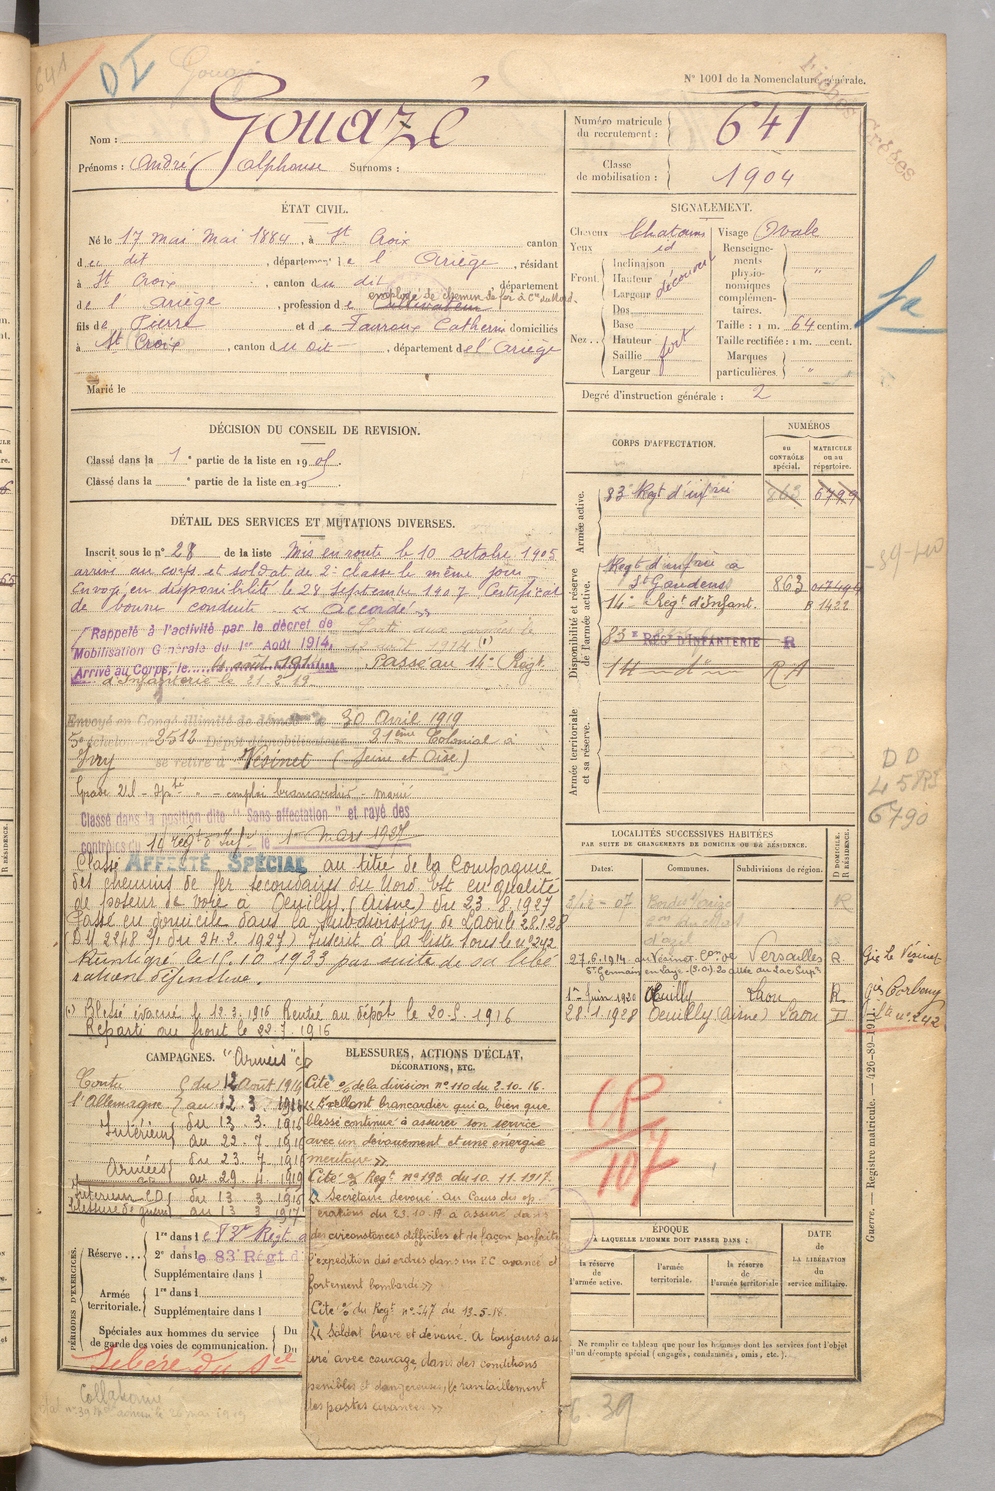 641
DI
Gouazé
N° 1001 de la Nomenclature générale.
Fiches
Nom : Gouazé
Prénoms : André Alphonse Surnoms :
ÉTAT CIVIL.
Né le 17 mai Mai 1884, à St Croix canton
du dit, département de l'Ariège, résidant
à St Croix, canton du dit département
employé de chemin de fer à Cie du Nord
de l'Ariège, profession de Cultivateur
fils de Pierre et de Tauroux Catherin domiciliés
à St Croix, canton du dit, département de l'Ariège
Marié le
DÉCISION DU CONSEIL DE REVISION.
Classé dans la 1e partie de la liste en 1905.
Classé dans la e partie de la liste en 19
DÉTAIL DES SERVICES ET MUTATIONS DIVERSES.
Inscrit sous le n° 28 de la liste Mis en route le 10 octobre 1905
arrivé au corps et soldat de 2e classe le même jour
Envoyé en disponibilité le 28 septembre 1907 Certificat
de bonne conduite « Accordé »
Rappelé à l'activité par le décret de
Mobilisation Générale du 1er Août 1914.
Arrivé au Corps, le 4 août 1914
Passé au 14e Régt
d'Infanterie le 21-2-19
Envoyé en Congé illimité de démob le 30 Avril 1919
5e échelon n° 2512 Dépôt démobilisateur 21ème Colonial à
Ivry se retire à Vésinet (Seine et Oise)
emploi brancardier - marié
Classé dans la position dite "Sans affectation" et rayé des
contrôles du 14 Régt d'Inf le 1er Mars 1927
Classé AFFECTÉ SPÉCIAL au titre de la Compagnie
des chemins de fer secondaires du Nord Est en qualité
de poseur de voie à Oeuilly (Aisne) du 23.8.1927
Passé en domicile dans la subdivision de Laon le 28.1.28
(DM 2248 du 24.2.1927) Inscrit à la liste sous le n° 242
Réintégré le 15.10 1933 par suite de sa libé
ration définitive.
(1) Blessé évacué le 12.3.1916 Rentré au dépôt le 20.5.1916
Reparti au front le 22.7.1916
CAMPAGNES. "Armées"
Contre du 12 Août 1914
l'Allemagne au 12. 3. 1916
Intérieur du 13. 3. 1916
au 22. 7. 1916
Armées du 23. 7. 1916
au 29. 4. 1919
Intérieur CD du 13 3 1916
blessure de guerre au 13 3 1917
Réserve 1re dans le 83e Régt d
2e dans le 83 Régt d
Supplémentaire dans l
Armée territoriale. 1re dans l
Supplémentaire dans l
Spéciales aux hommes du service
de garde des voies de communication. Du
Du
PÉRIODES D'EXERCICES.
Libéré du Sel
BLESSURES, ACTIONS D'ÉCLAT,
DÉCORATIONS, ETC.
Cité % de la division n° 110 du 2.10.16.
« Excellent brancardier qui a, bien que
blessé continué à assurer son service
avec un dévouement et une énergie
méritoire ».
Cité % Régt n° 193 du 10.11.1917.
« Secrétaire dévoué. Au Cours des op
érations du 23.10.17 a assuré dans
des circonstances difficiles et de façon parfaite
l'expédition des ordres dans un P.C. avancé et
fortement bombardé »
Cité % du Regt n° 247 du 13.5.18.
« Soldat brave et dévoué. A toujours ass
uré avec courage, dans des conditions
pénibles et dangereuses, le ravitaillement
des postes avancés »
Numéro matricule
du recrutement : 641
Classe
de mobilisation : 1904
SIGNALEMENT.
Cheveux Chatains Visage Ovale
Yeux id
Front. Inclinaison
Hauteur
Largeur
découvert
Nez. Dos
Base
Hauteur
Saillie
Largeur
fort
Renseignements physionomiques complémentaires. "
Taille : 1 m. 64 centim.
Taille rectifiée : 1 m. cent.
Marques particulières. "
Degré d'instruction générale : 2
CORPS D'AFFECTATION. NUMÉROS
au CONTRÔLE spécial. MATRICULE ou au répertoire.
Armée active.
83e Regt d'infrie 863 6799
Disponibilité et réserve de l'armée active.
Regt d'infrie à
St Gaudens 863
14e Régt d'Infant. B 1422
83e RÉGt D'INFANTERIE R
14 — d° — RA
Armée territoriale et sa réserve.
LOCALITÉS SUCCESSIVES HABITÉES
PAR SUITE DE CHANGEMENTS DE DOMICILE OU DE RÉSIDENCE.
Dates. Communes. Subdivisions de région. D DOMICILE. R RÉSIDENCE.
R
27.6.1914 au Vésinet Con de Versailles R. Gie Le Vésinet
St Germain en Laye (S.O.) 20 allée du Lac Supr
1er Juin 1920 Oeuilly Laon R. Gie Corbeny
28.1.1928 Oeuilly (Aisne) Laon D S.A n° 242
ÉPOQUE
À LAQUELLE L'HOMME DOIT PASSER DANS :
la réserve de l'armée active. l'armée territoriale. la réserve de l'armée territoriale
DATE de LA LIBÉRATION du service militaire.
Ne remplir ce tableau que pour les hommes dont les services font l'objet
d'un décompte spécial (engagés, condamnés, omis, etc.).
Guerre. — Registre matricule. — 426-89-1911.
DD
6790
6.39